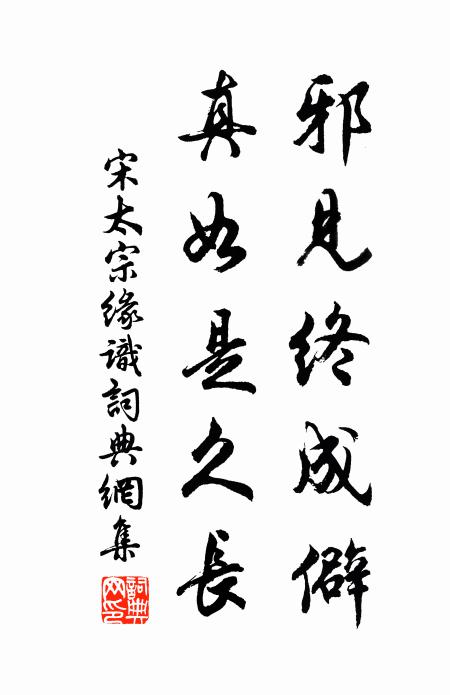 邪見終成僻
真如是久長
宋太宗緣識詞典網集
詞典
网印